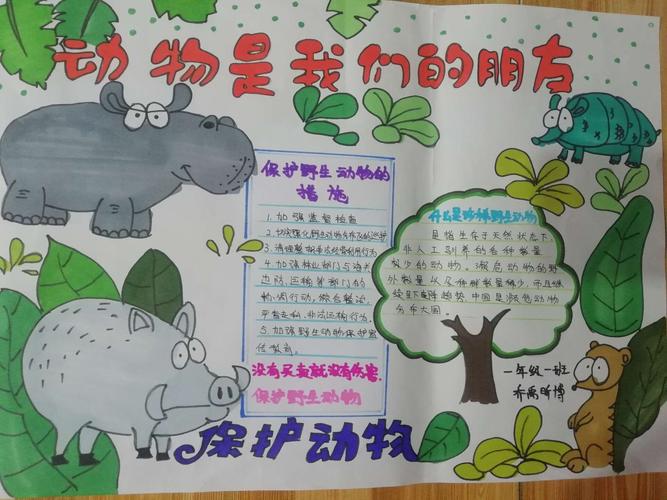 动物是我们的朋友
保护野生动物的
措施
1.加强监督检查
3.清理整顿非法经营利用行为
4.加强林业部门与海关
边防、运输等部门的
5.加强野生动物保护宣
传教育。
没有买卖就没有伤害.
保护野生动物
什么是珍稀野生动物
是指生存于天然状态下,
非人工驯养的各种数量
较少的动物。濒危动物的野
外数量以及种群数量稀少,而且继
续呈下降趋势.中国是濒危动物
分布大国。
一年级一班
保护动物